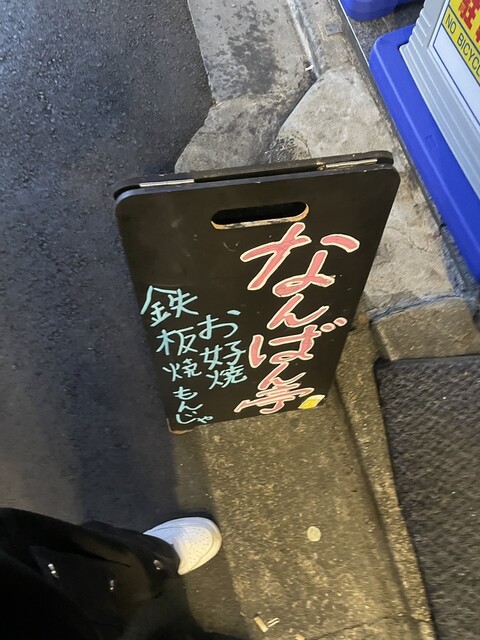 なんばん亭
お好焼
鉄板焼
もんじゃ
NO BICYCL